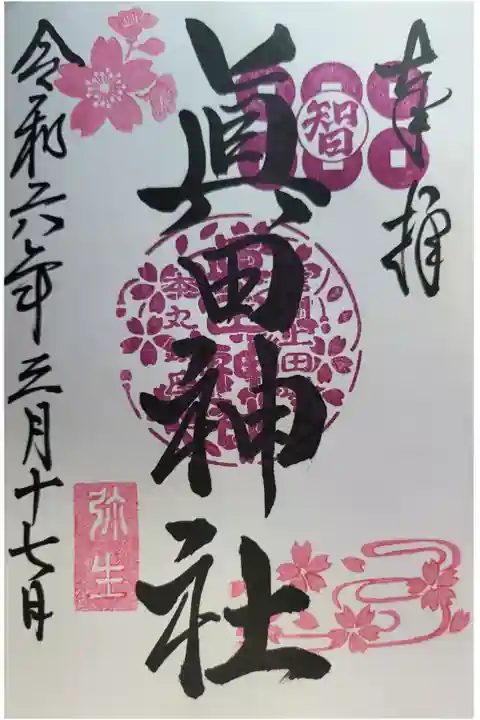 奉拝
智
眞田神社
弥生
令和六年三月十七日